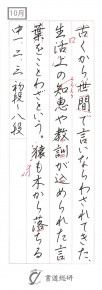 10月
古くから世間で言いならわされてきた、
生活上の知恵や教訓が込められた言
葉をことわざという。猿も木から落ちる
中一、二、三 初段〜八段
書道総研